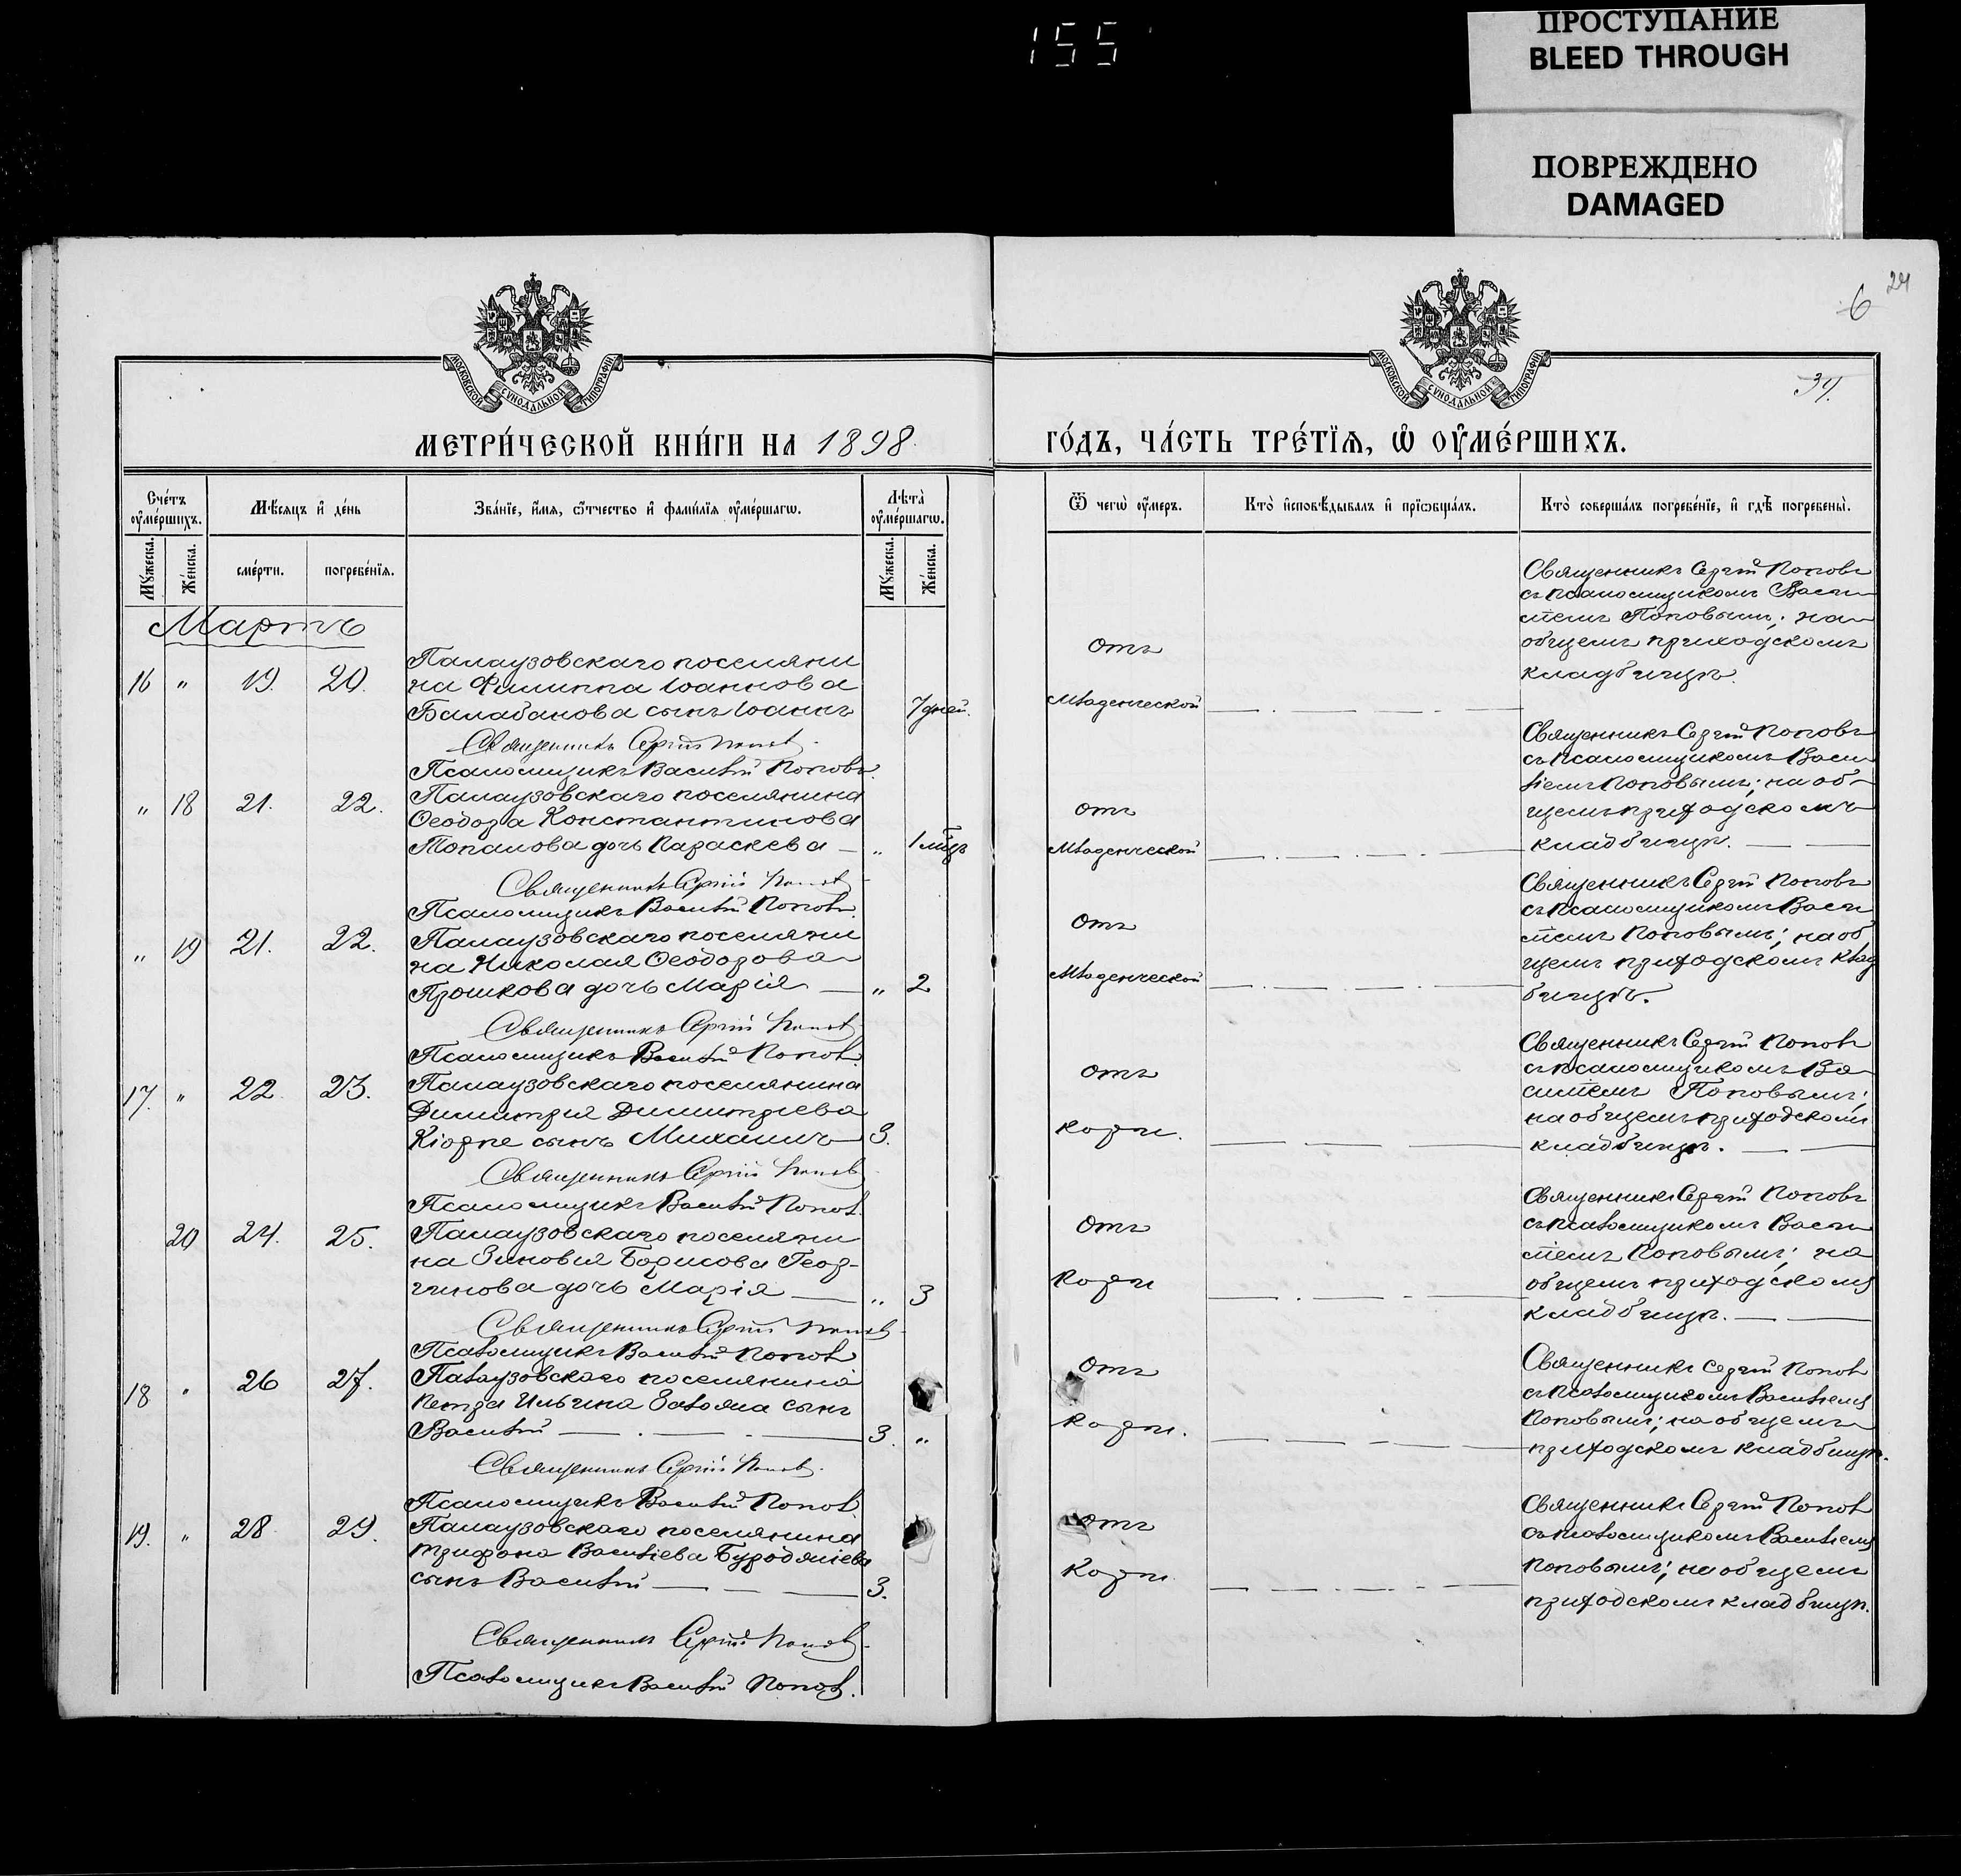 155
ПРОСТУПАНИЕ
BLEED THROUGH
ПОВРЕЖДЕНО
DAMAGED
24
6
34.
МОСКОВСКОЙ СѴНОДАЛЬНОЙ ТИПОГРАФІИ
МОСКОВСКОЙ СѴНОДАЛЬНОЙ ТИПОГРАФІИ
МЕТРИ́ЧЕСКОЙ КНИ́ГИ НА 1898.
ГО́ДЪ, ЧА́СТЬ ТРЕ́ТЇѦ, Ѡ҆ ОУ҆МЕ́РШИХЪ.
Сче́тъ оу҆ме́ршихъ.
Мѣ́сяцъ и҆ де́нь
Зва́нїе, и҆́мѧ, ѻ҆́тчество и҆ фами́лїѧ оу҆ме́ршагѡ.
Лѣта̀ оу҆ме́ршагѡ.
Мꙋ́жеска.
Же́нска.
сме́рти.
погребе́нїѧ.
Мꙋ́жеска.
Же́нска.
Ѿ чегѡ̀ оу҆́меръ.
Кто̀ и҆сповѣ́дывалъ и҆ прїѡбща́лъ.
Кто̀ соверша́лъ погребе́нїе, и҆ гдѣ̀ погребены̀.
Мартъ
16 " 19. 20.
Палаузовскаго поселяни
на Филиппа Іоаннова
Балабанова сынъ Іоаннъ
7 дней.
Священникъ Сергій Поповъ
Псаломщикъ Василій Поповъ.
отъ
младенческой
Священникъ Сергій Поповъ
съ псаломщикомъ Васи
ліемъ Поповымъ; на
общемъ приходскомъ
кладбищѣ.
" 18 21. 22.
Палаузовскаго поселянина
Ѳеодора Константинова
Топалова дочь Параскева — " 1 мѣц
Священникъ Сергій Поповъ
Псаломщикъ Василій Поповъ.
отъ
младенческой
Священникъ Сергій Поповъ
съ псаломщикомъ Васи
ліемъ Поповымъ; на об-
щемъ приходскомъ
кладбищѣ. —
" 19 21. 22.
Палаузовскаго поселяни
на Николая Ѳеодорова
Прошкова дочь Марія — " 2
Священникъ Сергій Поповъ
Псаломщикъ Василій Поповъ.
отъ
младенческой
Священникъ Сергій Поповъ
съ псаломщикомъ Васи
ліемъ Поповымъ; на об
щемъ приходскомъ клад
бищѣ.
17. " 22. 23.
Палаузовскаго поселянина
Димитрія Димитріева
Кіорпе сынъ Михаилъ 3.
Священникъ Сергій Поповъ
Псаломщикъ Василій Поповъ.
отъ
кори.
Священникъ Сергій Поповъ
съ псаломщикомъ Ва
силіемъ Поповымъ;
на общемъ приходскомъ
кладбищѣ. —
20 24. 25.
Палаузовскаго поселяни
на Зиновія Борисова Геор-
гинова дочь Марія — " 3
Священникъ Сергій Поповъ
Псаломщикъ Василій Поповъ
отъ
кори
Священникъ Сергій Поповъ
съ псаломщикомъ Васи
ліемъ Поповымъ; на
общемъ приходскомъ
кладбищѣ. —
18 " 26 27.
Палаузовскаго поселянина
Петра Ильина сынъ
Василій — 3. "
Священникъ Сергій Поповъ.
Псаломщикъ Василій Поповъ
отъ
кори.
Священникъ Сергій Поповъ
съ псаломщикомъ Василіемъ
Поповымъ; на общемъ
приходскомъ кладбищѣ.
19. " 28. 29.
Палаузовскаго поселянина
Трифона Василіева
сынъ Василій — 3.
Священникъ Сергій Поповъ
Псаломщикъ Василій Поповъ.
отъ
кори
Священникъ Сергій Поповъ
съ псаломщикомъ Василіемъ
Поповымъ; на общемъ
приходскомъ кладбищѣ.